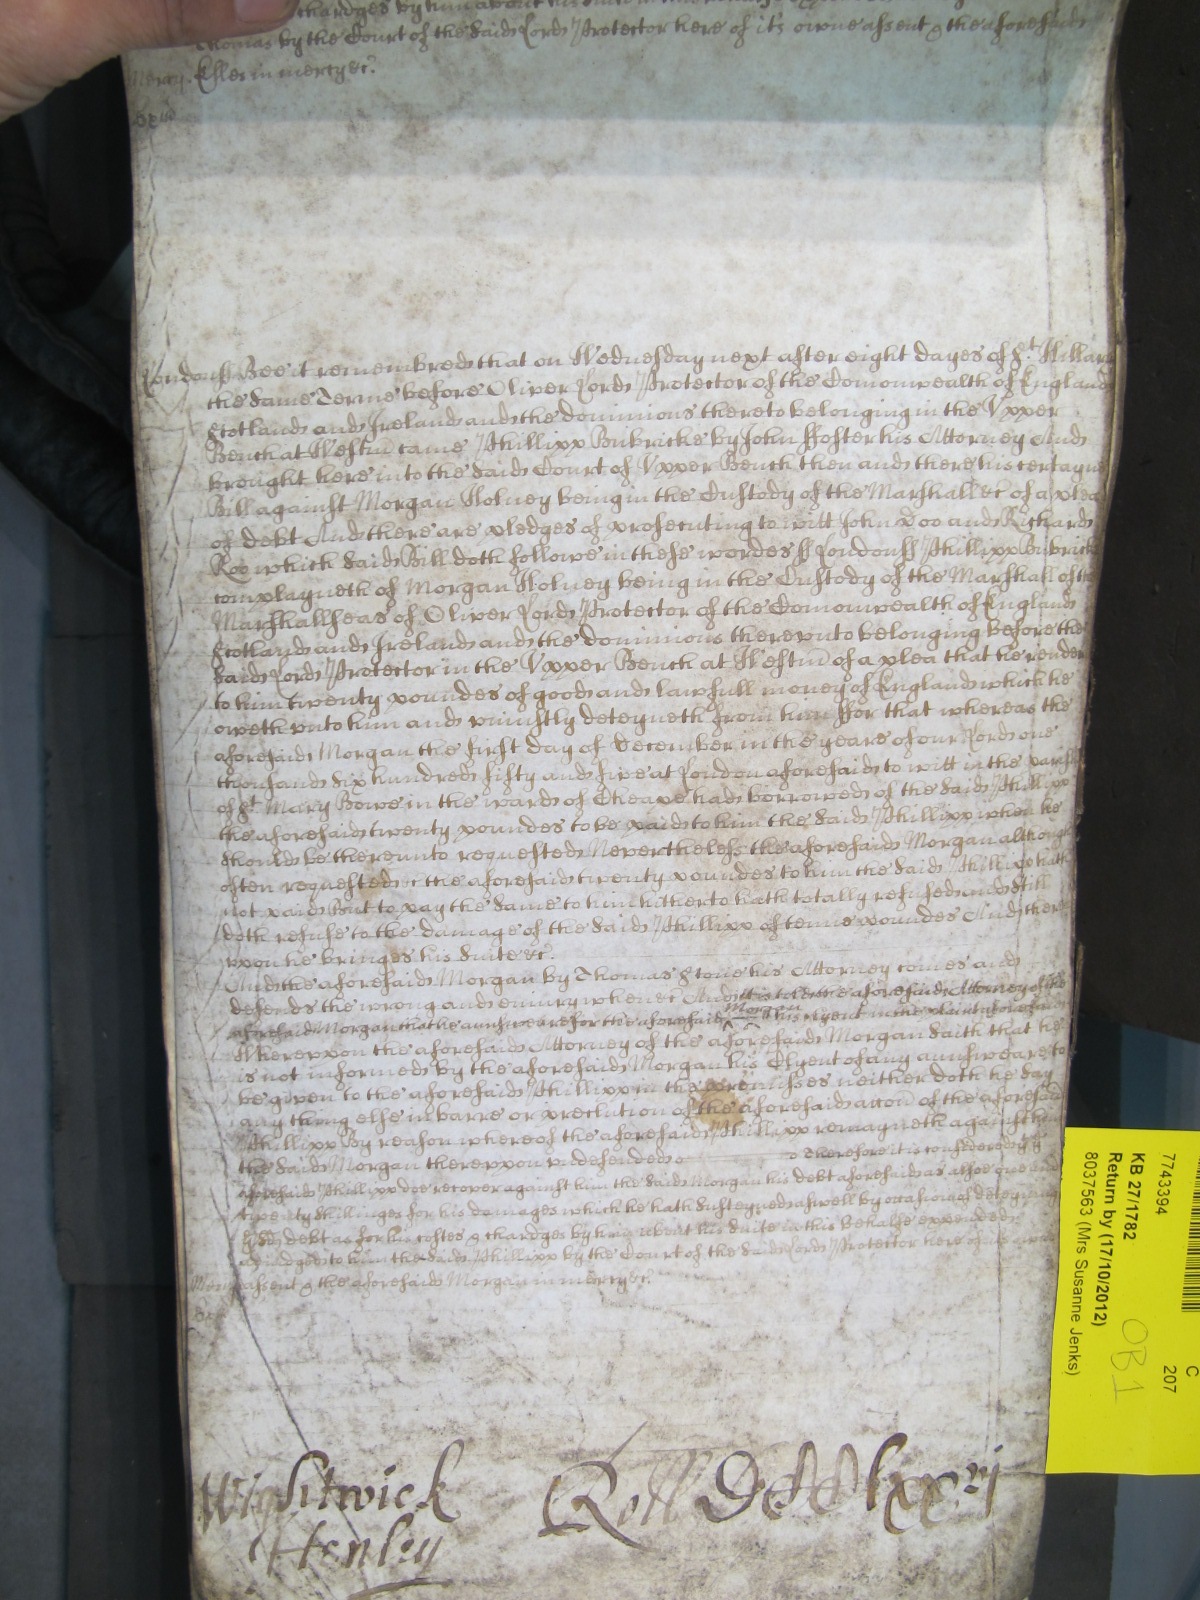 chardges by him about his suite in this behalfe
Thomas by the Court of the said Lord Protector here of its owne assent & the aforesaid
Mercy. Esler in mercy &c.
London ss Bee it remembred that on Wednesday next after eight dayes of St. Hillary
the same Terme before Oliver Lord Protector of the Comonwealth of England
Scotland and Ireland and the dominions thereto belonging in the Upper
Bench at Westm came Phillipp Bubricke by John Foster his Attorney And
brought here into the said Court of Upper Bench then and there his certayne
Bill against Morgan Holney being in the Custody of the Marshall &c of a plea
of debt And there are pledges of prosecuting to witt John Doo and Richard
Roo which said Bill doth followe in these wordes ss London ss Phillipp Bubricke
complayneth of Morgan Holney being in the Custody of the Marshall of the
Marshallseas of Oliver Lord Protector of the Comonwealth of England
Scotland and Ireland and the dominions thereunto belonging before the
said Lord Protector in the Upper Bench at Westm of a plea that he render
to him twenty poundes of good and lawfull money of England which he
oweth unto him and uniustly deteyneth from him For that whereas the
aforesaid Morgan the first day of December in the yeare of our Lord one
thousand six hundred fifty and five at London aforesaid to witt in the parish
of St Mary Bowe in the ward of Cheape had borrowed of the said Phillipp
the aforesaid twenty poundes to be paid to him the said Phillipp when he
should be thereunto requested Nevertheless the aforesaid Morgan although
often requested &c the aforesaid twenty poundes to him the said Phillipp hath
not paid But to pay the same to him hitherto hath totally refused and still
doth refuse to the damage of the said Phillipp of tenne poundes And there
upon he bringes his suite &c.
And the aforesaid Morgan by Thomas Stone his Attorney comes and
defends the wrong and iniury when &c And itt is told the aforesaid Attorney of the
aforesaid Morgan that he aunsweare for the aforesaid Morgan his clyent in the plaint aforesaid
Whereupon the aforesaid Attorney of the aforesaid Morgan saith that he
is not informed by the aforesaid Morgan his Clyent of any aunsweare to
be given to the aforesaid Phillipp in the premisses neither doth he say
any thing else in barre or preclution of the aforesaid accon of the aforesaid
Phillipp By reason whereof the aforesaid Phillipp remayneth against him
the said Morgan thereupon undefended Therefore it is considered that the
aforesaid Phillipp doe recover against him the said Morgan his debt aforesaid as alsoe one and
twenty shillinges for his damages which he hath susteyned aswell by occasion of deteyning
debt as for his costes & chardges by him about his suite in this behalfe expended
adiudged to him the said Phillipp by the Court of the said Lord Protector here of its owne
Mercy assent & the aforesaid Morgan in mercy &c.
Wightwick Roll DCCClxxvj
Henley
C
7743394 207
KB 27/1782
Return by (17/10/2012)
8037563 (Mrs Susanne Jenks)
OB 1